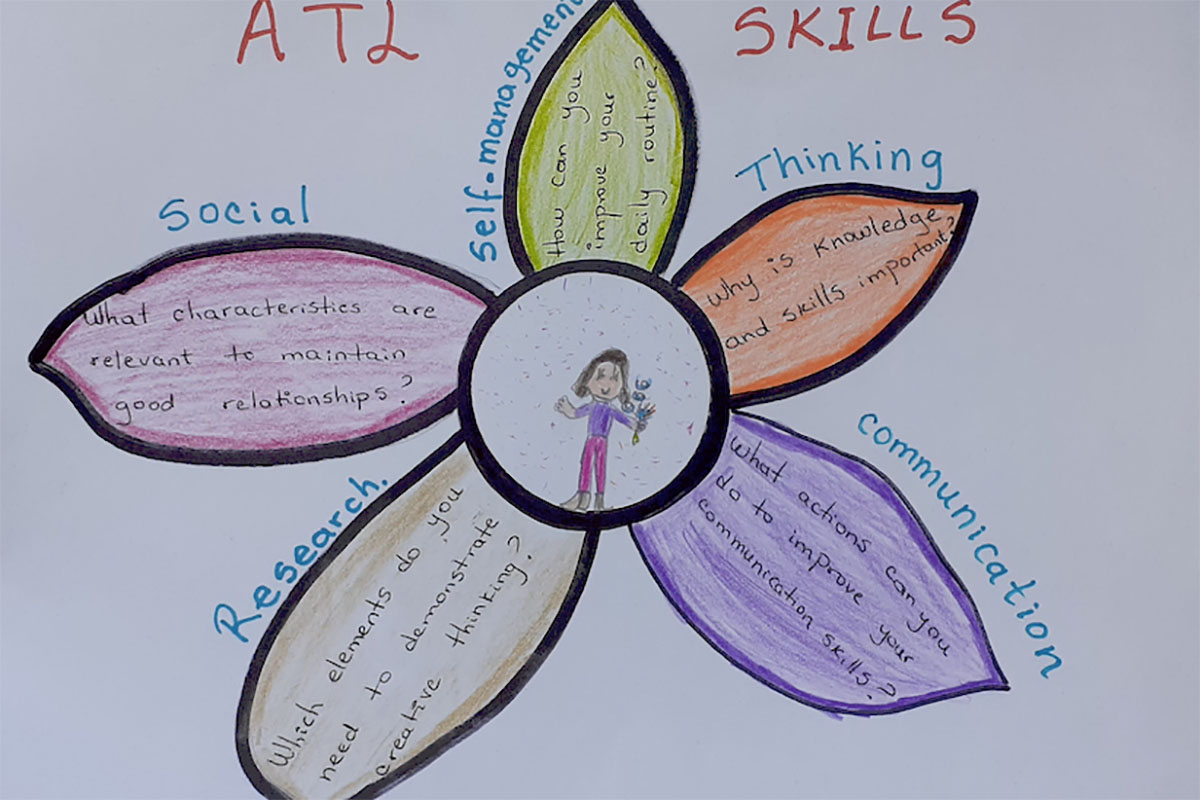 ATL SKILLS
Self-management
How can you
improve your
daily routine?
Thinking
Why is knowledge,
and skills important?
Social
What characteristics are
relevant to maintain
good relationships?
communication
What actions can you
do to improve your
communication skills?
Research.
Which elements do you
need to demonstrate
creative thinking?